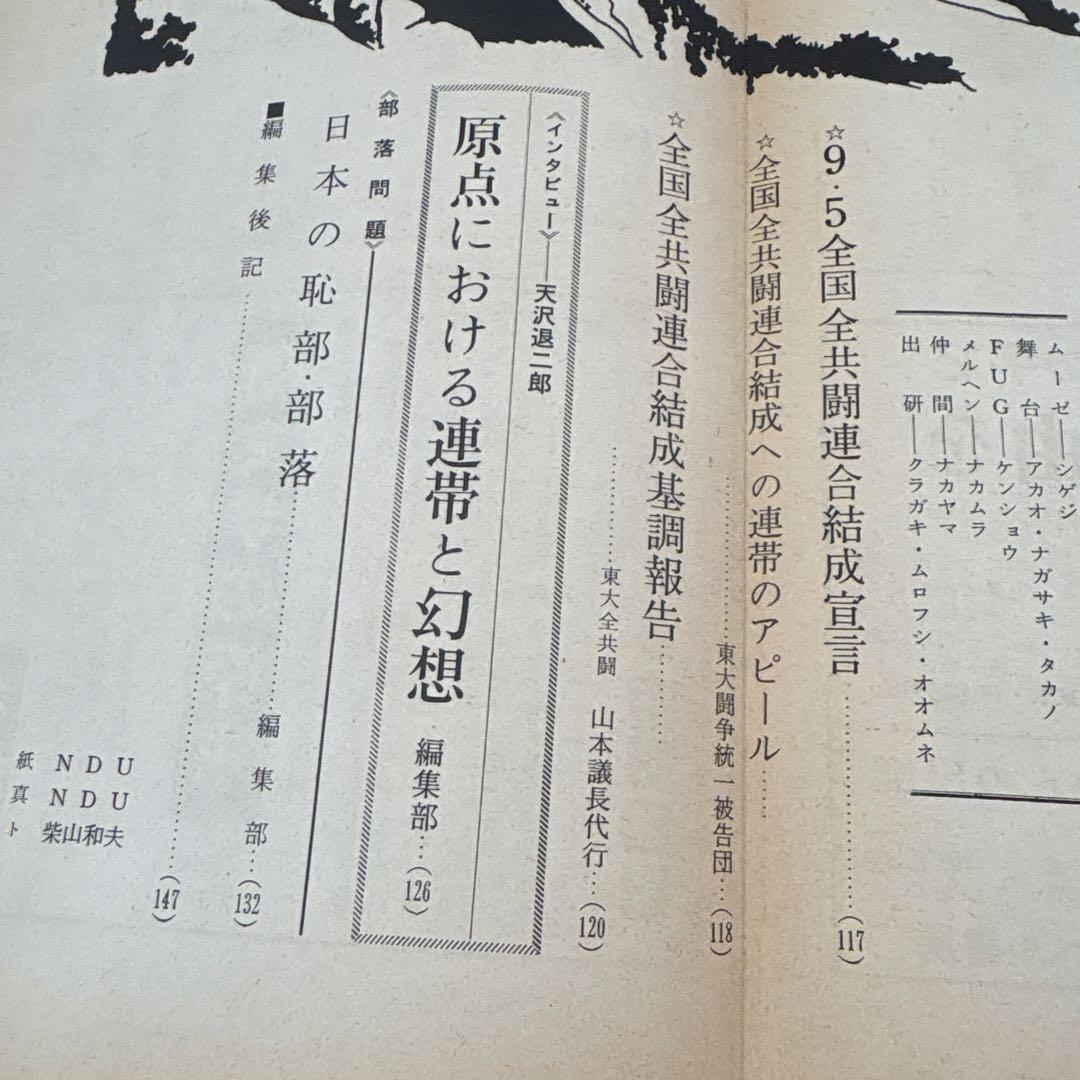 ムーゼ――シゲジ
舞台――アカオ・ナガサキ・タカノ
FUG――ケンショウ
メルヘン――ナカムラ
仲間――ナカヤマ
出研――クラガキ・ムロフシ・オオムネ
☆9・5全国全共闘連合結成宣言………(117)
☆全国全共闘連合結成への連帯のアピール……
………東大闘争統一被告団…(118)
☆全国全共闘連合結成基調報告………
………東大全共闘 山本議長代行…(120)
《インタビュー》――天沢退二郎
原点における連帯と幻想 編集部…(126)
《部落問題》
日本の恥部・部落………編集部…(132)
■編集後記………(147)
紙 NDU
真 NDU
ト 柴山和夫